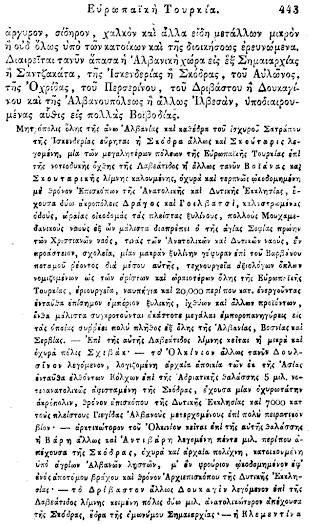 Εὐρωπαϊκὴ Τουρκία. 443
ἄργυρον, σίδηρον, χαλκὸν καὶ ἄλλα εἴδη μετάλλων μικρὸν
ἢ οὐδ᾽ ὅλως ὑπὸ τῶν κατοίκων καὶ τῆς διοικήσεως ἐρευνώμενα.
Διαιρεῖται τανῦν ἅπασα ἡ Ἀλβανικὴ χώρα εἰς ἓξ Σημαιαρχίας
ἢ Σαντζακάτα, τῆς Ἰσκενδερίας ἢ Σκόδρας, τοῦ Αὐλῶνος,
τῆς Ὀχρίδας, τοῦ Περσερίνου, τοῦ Δριβάστου ἢ Δουκαγί-
νου καὶ τῆς Ἀλβανουπόλεως ἢ ἄλλως Ἰλβεσὰν, ὑποδιαιρου-
μένας αὖθις εἰς πολλὰς Βοϊβοδίας.
Μητρόπολις ὅλης τῆς ἄνω Ἀλβανίας καὶ καθέδρα τοῦ ἰσχυροῦ Σατράπου
τῆς Ἰσκενδερίας εὕρηται ἡ Σκόδρα ἄλλως καὶ Σκούταρις λε-
γομένη, μία τῶν μεγαλητέρων πόλεων τῆς Εὐρωπαϊκῆς Τουρκίας ἐπὶ
τῆς νοτειοδυκῆς ὄχθης τῆς Λαβεάτιδος ἢ ἄλλως τανῦν Βοϊάνας καὶ
Σκουταρικῆς λίμνης καλουμένης, ὀχυρὰ καὶ τερπνῶς ᾠκοδομημένη
μὲ θρόνον Ἐπισκόπων τῆς Ἀνατολικῆς καὶ Δυτικῆς Ἐκκλησίας, ἔ-
χουσα δύω ἀκροπόλεις Δράγος καὶ Γοελβατσὶ, καλιστρωμένας
ὁδοὺς, ὡραίας οἰκοδομὰς τὰς πλείστας ξυλίνους, πολλοὺς Μουχαμε-
δανικοὺς ναοὺς ἐξ ὧν μάλιστα διαπρέπει ὁ τῆς ἁγίας Σοφίας πρώην
τῶν Χριστιανῶν ναὸς, τινὰς τῶν Ἀνατολικῶν καὶ Δυτικῶν ναοὺς, ἓν
προάστειον, σχολεῖα, μίαν μακρὰν ξυλίνην γέφυραν ἐπὶ τοῦ Βαρβάνου
ποταμοῦ ῥέοντος διὰ μέσου αὐτῆς, τεχνουργεῖα ἀξιολόγων ὅπλων
νομιζομένων ὡς τῶν ἀρίστων καὶ ὡραιοτέρων ὅλης τῆς Εὐρωπαϊκῆς
Τουρκίας, ἐριουργεῖα, ναυπήγια καὶ 20,000 περίπου κατ. ἐνεργοῦντας
ἐνταῦθα ἐπίσημον ἐμπόριον ξυλικῆς, ἰχθύων καὶ ἄλλων προϊόντων,
ἔνθα μάλιστα συγκροτοῦνται ἑκάστοτε μεγάλαι ἐμποροπανηγύρεις εἰς
τὰς ὁποίας συῤῥέει πολὺ πλῆθος ἐξ ὅλης τῆς Ἀλβανίας, Βοσνίας καὶ
Σερβίας. — Ἐπὶ τῆς αὐτῆς Λαβεάτιδος λίμνης κεῖται ἡ μικρὰ καὶ
ὀχυρὰ πόλις Σχιβάκ· — τὸ Ὀλκίνιον ἄλλως τανῦν Δουλ-
σῖνον λεγόμενον, λογιζομένη ἀρχαία ἀποικία τῶν ἐκ τῆς Ἀσίας
ἐνταῦθα ἐλθόντων Κόλχων ἐπὶ τῆς Ἀδριατικῆς θαλάσσης 5 μιλ. νο-
τειοανατολικῶς ἀφισταμένη τῆς Σκόδρας, ἔχουσα μίαν ὀχυρωτάτην
ἀκρόπολιν, θρόνον ἐπισκόπου τῆς Δυτικῆς Ἐκκλησίας καὶ 7000 κατ
τοὺς πλείστους Γιεγίδας Ἀλβανοὺς μετερχομένους ἐπὶ πολὺ πειρατικὸν
βίον· — ἀρκτικώτερον τοῦ Ὀλκινίου κεῖται ἐπὶ τῆς αὐτῆς θαλάσσης
ἡ Βάρη ἄλλως καὶ Ἀντιβάρη λεγομένη πέντε μιλ. περίπου ἀ-
πέχουσα τῆς Σκόδρας, ὀχυρὰ καὶ ἀρχαία πολίχνη, κατοικουμένη
ὑπὸ ἀγρίων Ἀλβανῶν λῃστῶν, μ᾽ ἓν φρούριον ᾠκοδομημένον ἐφ᾽
ἑνὸς ἀποτόμου βράχου καὶ θρόνον Ἀρχιεπισκόπου τῆς Δυτικῆς Ἐκκλη-
σίας· — τὸ Δρίβαστον ἄλλως Δουκαγὶν λεγόμενον ἐπὶ τῆς
Λαβεάτιδος λίμνης κείμενη πόλις δύω μιλ. ἀνατολικώτερον ἀπέχουσα
τῆς Σκόδρας, ἕδρα τῆς ὁμωνύμου Σημαιαρχίας· — ἡ Κλεμεντίνα